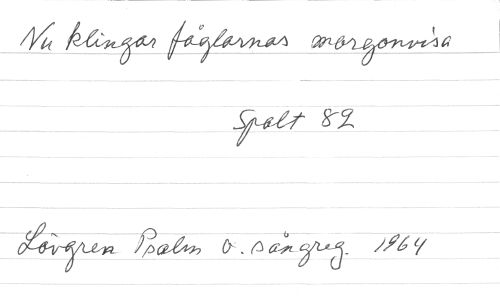 Nu klingar fåglarnas morgonvisa
Spalt 82
Lövgren Psalm o. sångreg. 1964